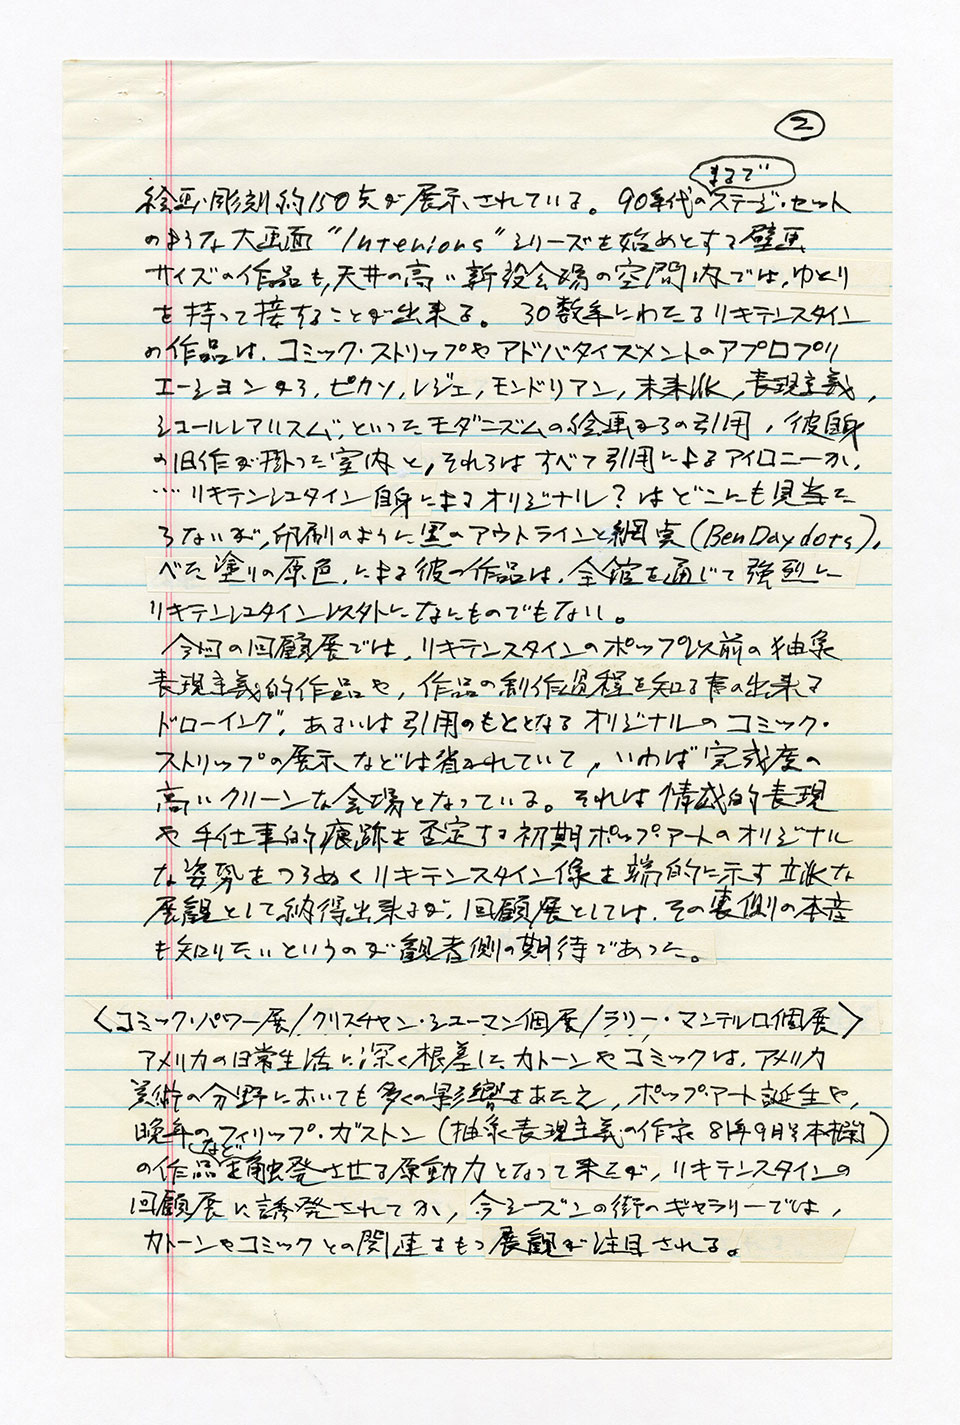 ②
まるで
絵画・彫刻約150点が展示されている。90年代のステージ・セット
のような大画面“Interiors”シリーズを始めとする壁画
サイズの作品も,天井の高い新設会場の空間内では,ゆとり
を持って接することが出来る。30数年にわたるリキテンスタイン
の作品は,コミック・ストリップやアドバタイズメントのアプロプリ
エーションから,ピカソ,レジェ,モンドリアン,未来派,表現主義,
シュールレアリスム,といったモダニズムの絵画からの引用,彼自身
の旧作が掛った室内と,それらはすべて引用によるアイロニーか,
…リキテンシュタイン自身によるオリジナル?はどこにも見当た
らないが,印刷のように黒のアウトラインと網点(Ben Day dots),
べた塗りの原色,による彼の作品は,全館を通じて強烈に
リキテンシュタイン以外になにものでもない。
今回の回顧展では,リキテンスタインのポップ以前の抽象
表現主義的作品や,作品の創作過程を知る事の出来る
ドローイング,あるいは引用のもととなるオリジナルのコミック・
ストリップの展示などは省かれていて,いわば完成度の
高いクリーンな会場となっている。それは情感的表現
や手仕事的痕跡を否定する初期ポップアートのオリジナル
な姿勢をつらぬくリキテンスタイン像を端的に示す立派な
展観として納得出来るが,回顧展としては,その裏側の本音
も知りたいというのが観者側の期待であった。
〈コミック・パワー展/クリスチャン・シューマン個展/ラリー・マンテルロ個展〉
アメリカの日常生活に深く根差した カトーンやコミックは,アメリカ
美術の分野においても多くの影響をあたえ,ポップ・アート誕生や,
晩年のフィリップ・ガストン(抽象表現主義の作家 81年9月号本欄)
など
の作品を触発させる原動力となって来たが,リキテンスタインの
回顧展に誘発されてか,今シーズンの街のギャラリーでは,
カトーンやコミックとの関連をもつ展観が注目される。